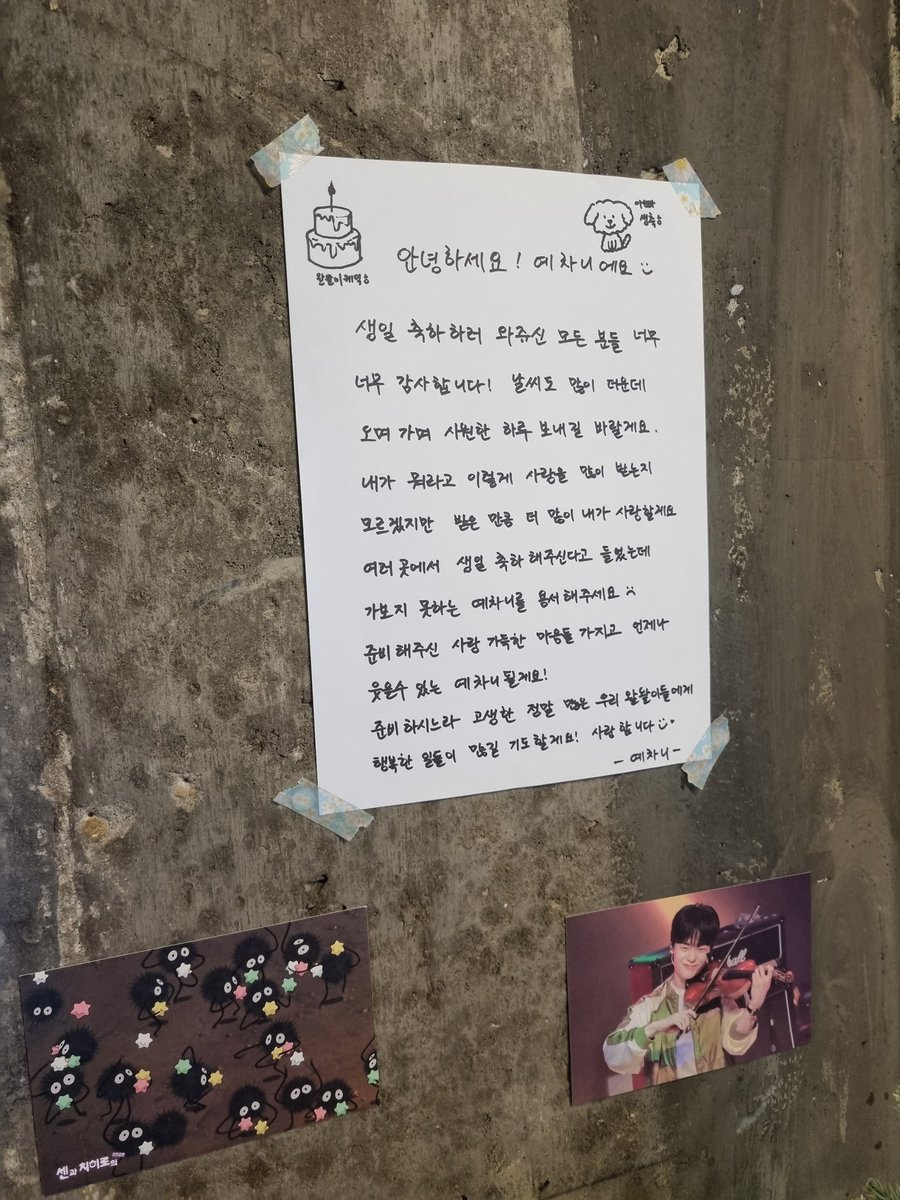 왈왈이케익송
생축송
안녕하세요! 예차니에요
생일 축하하러 와쥬신 모든 분들 너무
너무 감사합니다! 날씨도 많이 더운데
오며가며 시원한 하루 보내길 바랄게요.
내가 뭐라고 이렇게 사랑을 많이 받는지
모르겠지만 받은 만큼 더 많이 내가 사랑할게요
여러 곳에서 생일 축하해주신다고 들었는데
가보지 못하는 예차니를 용서해주세요
준비해주신 사랑 가득한 마음들 가지고 언제나
웃을수 있는 예차니될게요!
준비하시느라 고생한 정말 많은 우리 왈왈이들에게
행복한 일들이 많길 기도할게요! 사랑합니다
- 예차니 -
센과 치히로의